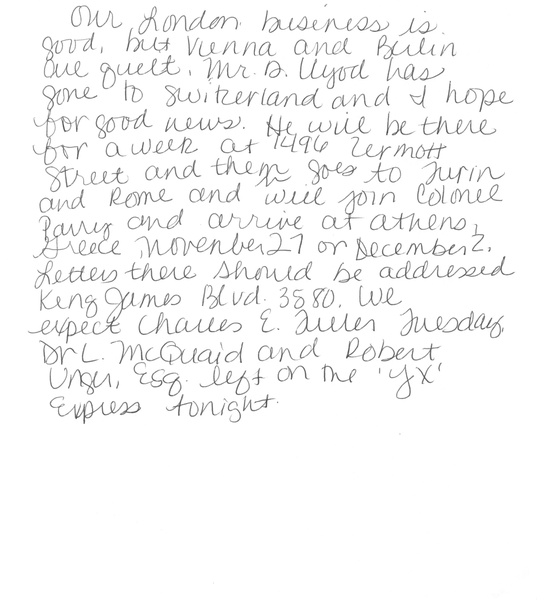 Our London business is
good, but Vienna and Berlin
are quiet. Mr. D. Llyod has
gone to Switzerland and I hope
for good news. He will be there
for a week at 1496 Zermott
Street and then goes to Turin
and Rome and will join Colonel
Parry and arrive at Athens,
Greece, November 27 or December 2.
Letters there should be addressed
King James Blvd. 3580. We
expect Charles E. Fuller Tuesday.
Dr L. McQuaid and Robert
Unger, Esq. left on the 'YX'
Express tonight.